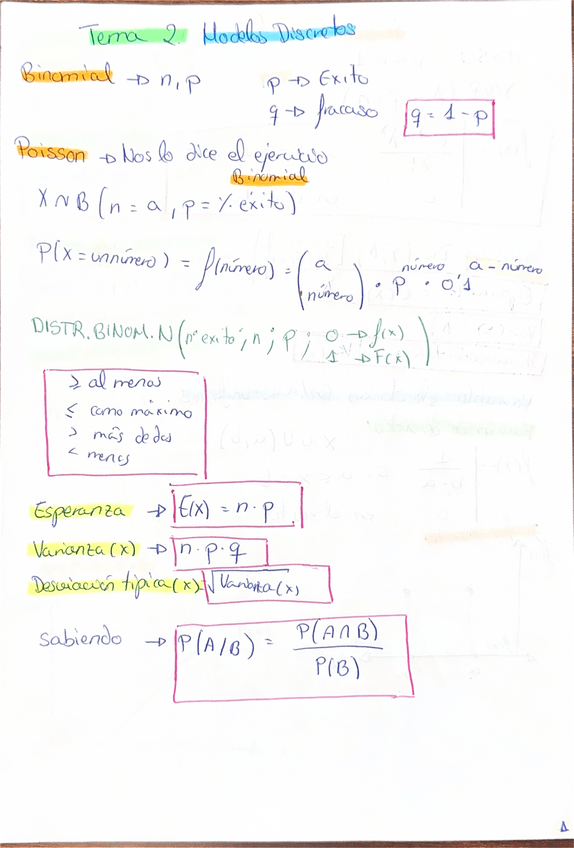 Tema 2 Modelos Discretos
Binomial → n, p p → Éxito
q → fracaso q = 1 - p
Poisson → Nos lo dice el ejercicio
Binomial
X ~ B (n = a, p = % éxito)
P(X = un número) = f(número) = (a número) · p^número · 0,1^a - número
DISTR.BINOM.N (nº éxito; n; p; 0 → f(x)
1 → F(x))
≥ al menos
≤ como máximo
> más de dos
< menos
Esperanza → E(x) = n · p
Varianza (x) → n · p · q
Desviación típica (x) = √Varianza(x)
Sabiendo → P(A/B) = P(A∩B) / P(B)
1